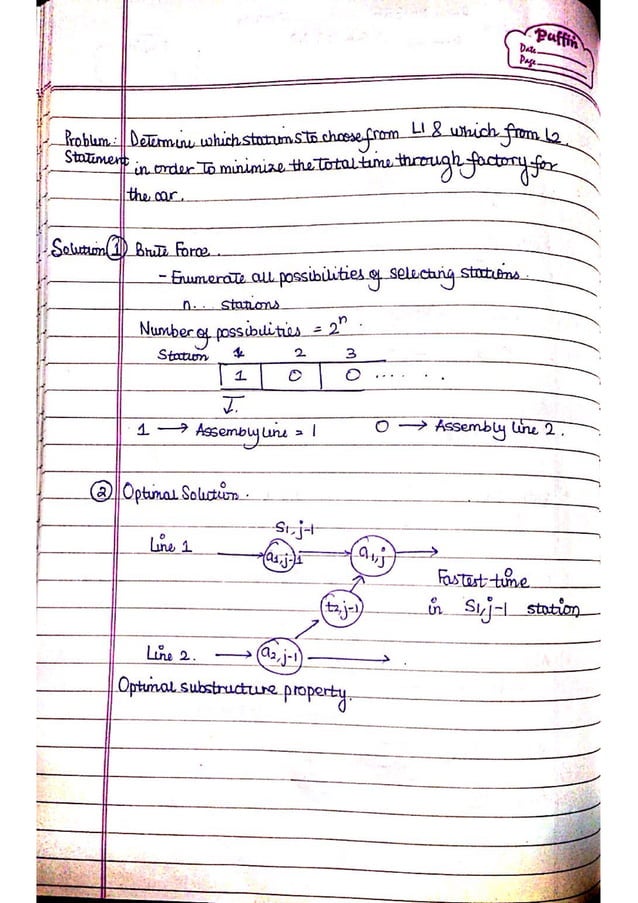 Puffin
Date
Page
Problem: Determine which stations to choose from L1 & which from L2
Statement in order To minimize the Total time through factory for
the car.
Solution ① Brute Force.
- Enumerate all possibilities of selecting stations.
n... stations
Number of possibilities = 2ⁿ.
Station 1 2 3
1 0 0 ......
1 → Assembly line = 1 0 → Assembly line 2.
② Optimal Solution.
S1,j-1
Line 1 a1,j-1 a1,j
Fastest time
t2,j-1 in S1,j-1 station
Line 2. a2,j-1
Optimal substructure property.